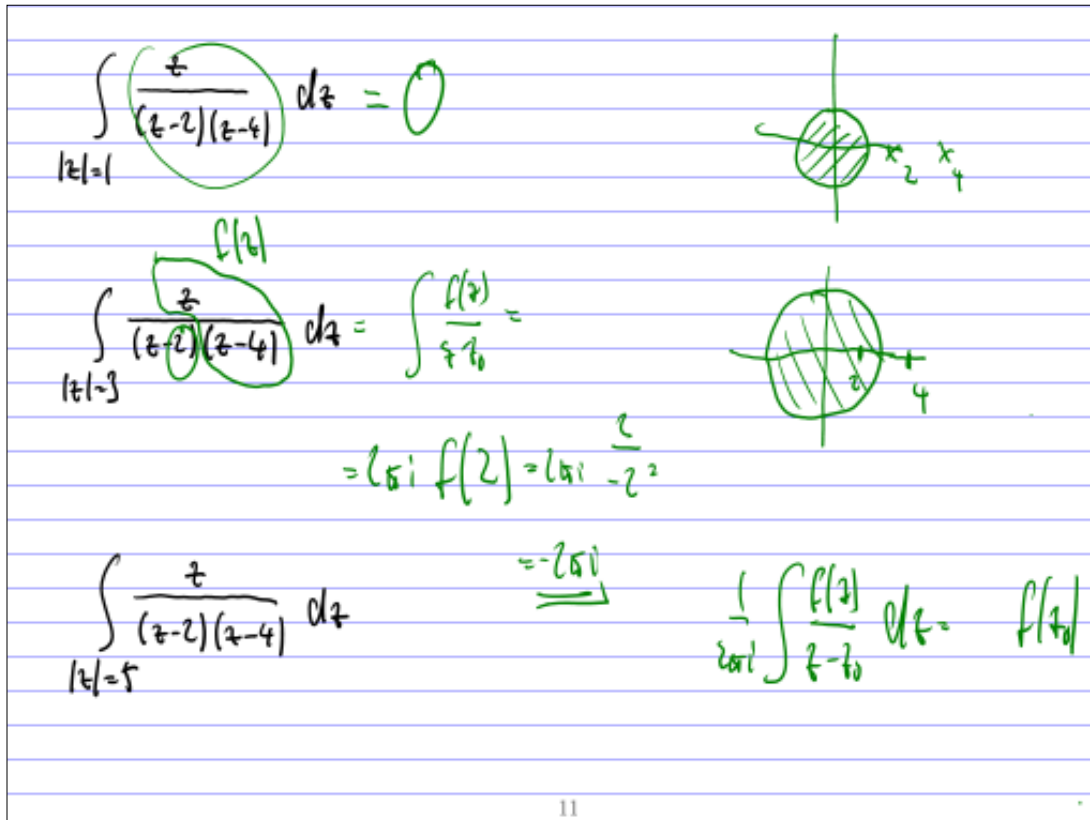 ∫_{|z|=1} z/((z-2)(z-4)) dz = 0
2 4
f(z)
∫_{|z|=3} z/((z-2)(z-4)) dz = ∫ f(z)/(z-z₀) =
2 4
= 2πi f(2) = 2πi 2/(-2)
= -2πi
∫_{|z|=5} z/((z-2)(z-4)) dz
1/(2πi) ∫ f(z)/(z-z₀) dz = f(z₀)
11